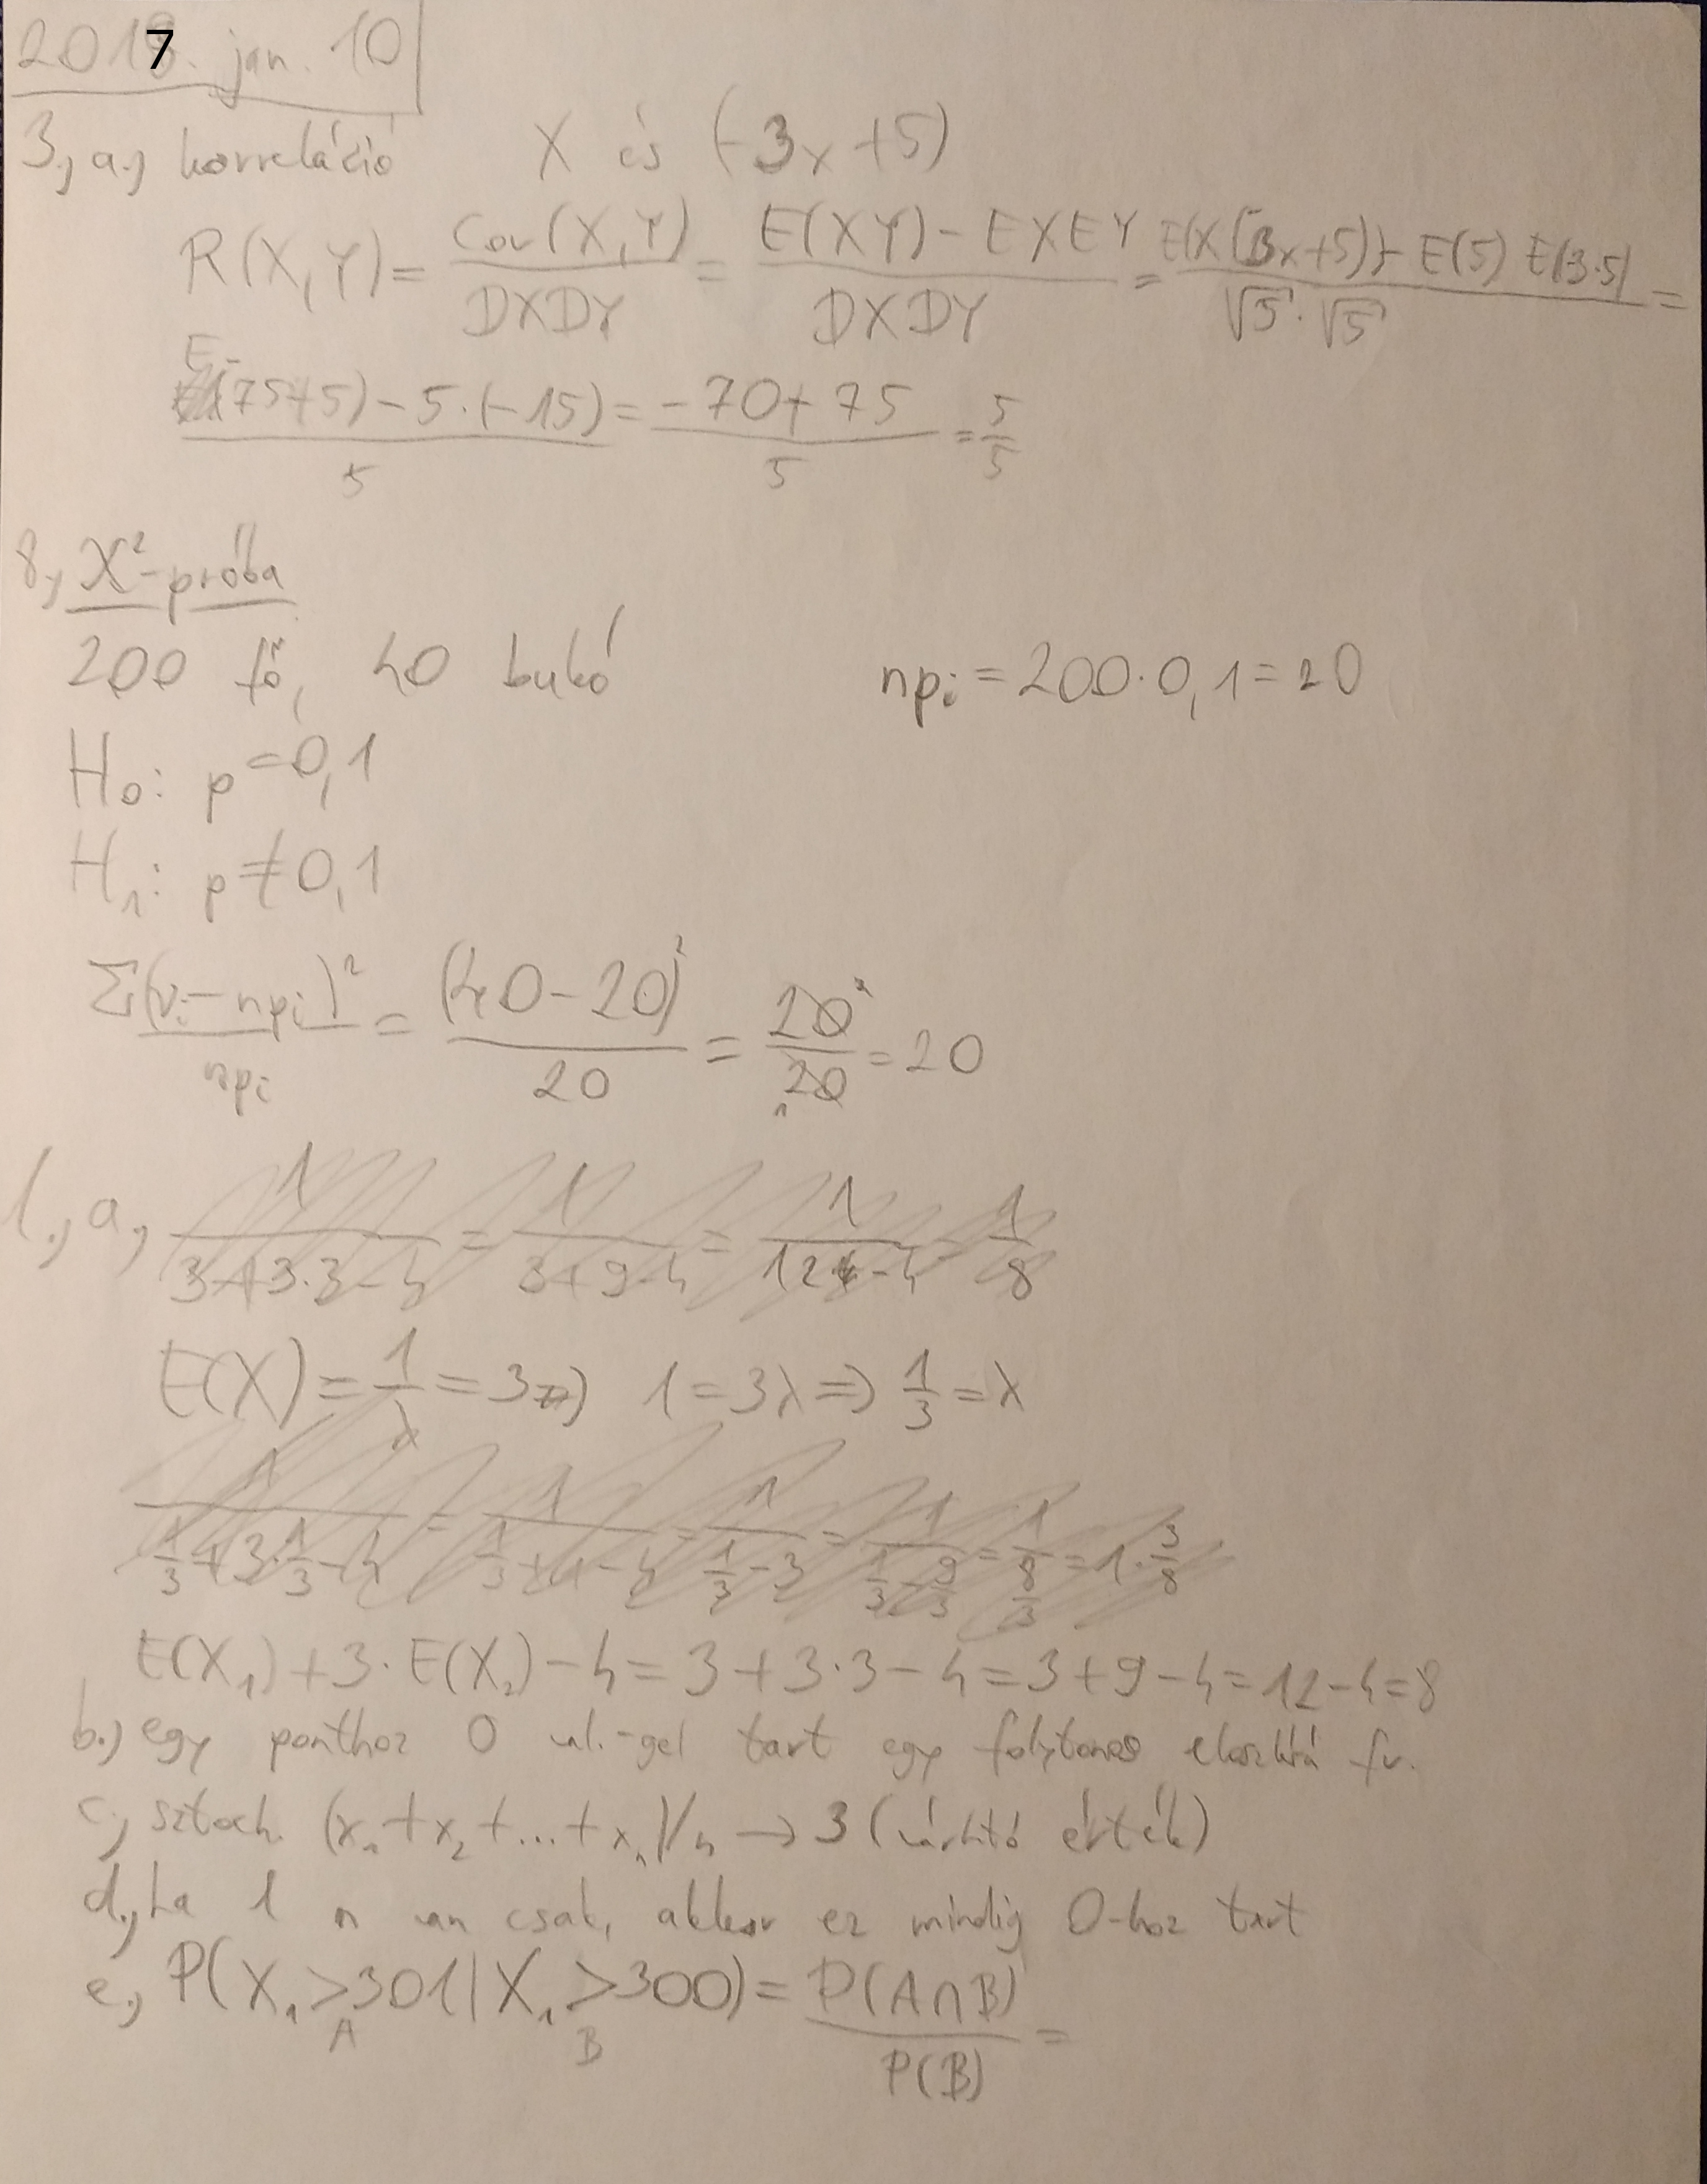 2017. jan. 10
3, a., korreláció X és (-3x+5)
R(X,Y) = Cov(X,Y) / DXDY = E(XY) - EXEY / DXDY = E(X(-3x+5)) - E(5) E(-3·5) / √5 · √5 =
E(-75+5) - 5·(-15) / 5 = -70+75 / 5 = 5/5
8, X²-próba
200 fő, 40 bukó npi = 200·0,1 = 20
H0: p=0,1
H1: p≠0,1
Σ(νi - npi)² / npi = (40-20)² / 20 = 20² / 20 = 20
1., a, 1 / 3+3·3-4 = 1 / 3+9-4 = 1 / 12-4 = 1/8
E(X) = 1/λ = 3 => 1=3λ => 1/3 = λ
1 / 1/3+3·1/3-4 = 1 / 1/3+1-4 = 1 / 1/3-3 = 1 / 1/3-9/3 = 1 / 8/3 = 1·3/8
E(X1) + 3·E(X2) - 4 = 3+3·3-4 = 3+9-4 = 12-4 = 8
b.) egy ponthoz 0 val.-gel tart egy folytonos eloszlású fv.
c, sztoch. (x1+x2+...+xn)/n → 3 (várható érték)
d., ha 1 n van csak, akkor ez mindig 0-hoz tart
e., P(X1>301|X1>300) = P(A∩B) / P(B) =
A B